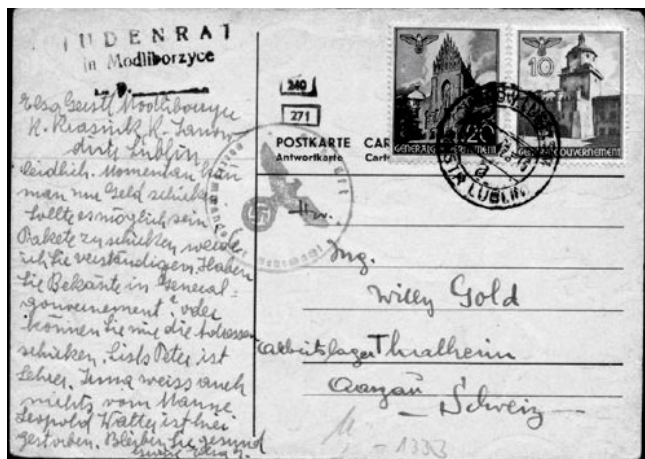 JUDENRAT
in Modliborzyce
Elsa Gerstl Modliborzyce
K. Krasnik K. Janow
distr. Lublin
leidlich. Momentan kann
man nur Geld schicken.
Sollte es möglich sein
Pakete zu schicken werde
ich Sie verständigen. Haben
Sie Bekannte in General=
gouvernement? oder
können Sie mir die Adressen
schicken. Lists Peter ist
Lehrer. Irma weiss auch
nichts vom Manne.
Leopold Watter ist hier
gestorben. Bleiben Sie gesund
240
271
POSTKARTE CAR
Antwortkarte Cart
20
GENERALGOUVERNEMENT
10
GENERALGOUVERNEMENT
LUBLIN
Oberkommando der Wehrmacht
Hrn.
Ing.
Willy Gold
Arbeitslager Thralheim
Aargau
— Schweiz —
1353